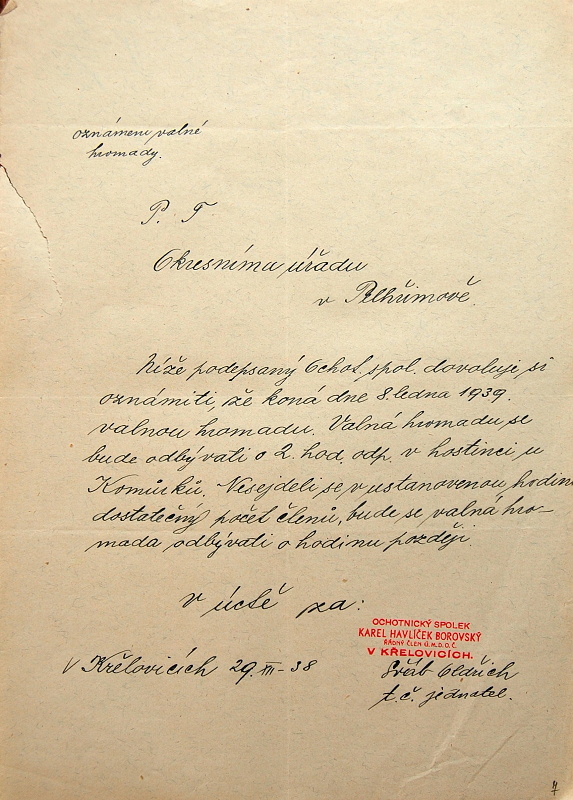 oznámení valné
hromády.
P. T
Okresnímu úřadu
v Pelhřimově.
Níže podepsaný Ochot. spol. dovoluje si
oznámiti, že koná dne 8. ledna 1939.
valnou hromadu. Valná hromadu se
bude odbývati o 2. hod. odp. v hostinci u
Komůrků. Nesejdeli se v ustanovenou hodinu
dostatečný počet členů, bude se valná hro-
mada odbývati o hodinu později.
v úctě za:
OCHOTNICKÝ SPOLEK
KAREL HAVLÍČEK BOROVSKÝ
ŘÁDNÝ ČLEN Ú.M.D.O.Č.
V KŘELOVICÍCH.
V Křelovicích 29. - 38
Oldřich
t. č. jednatel.